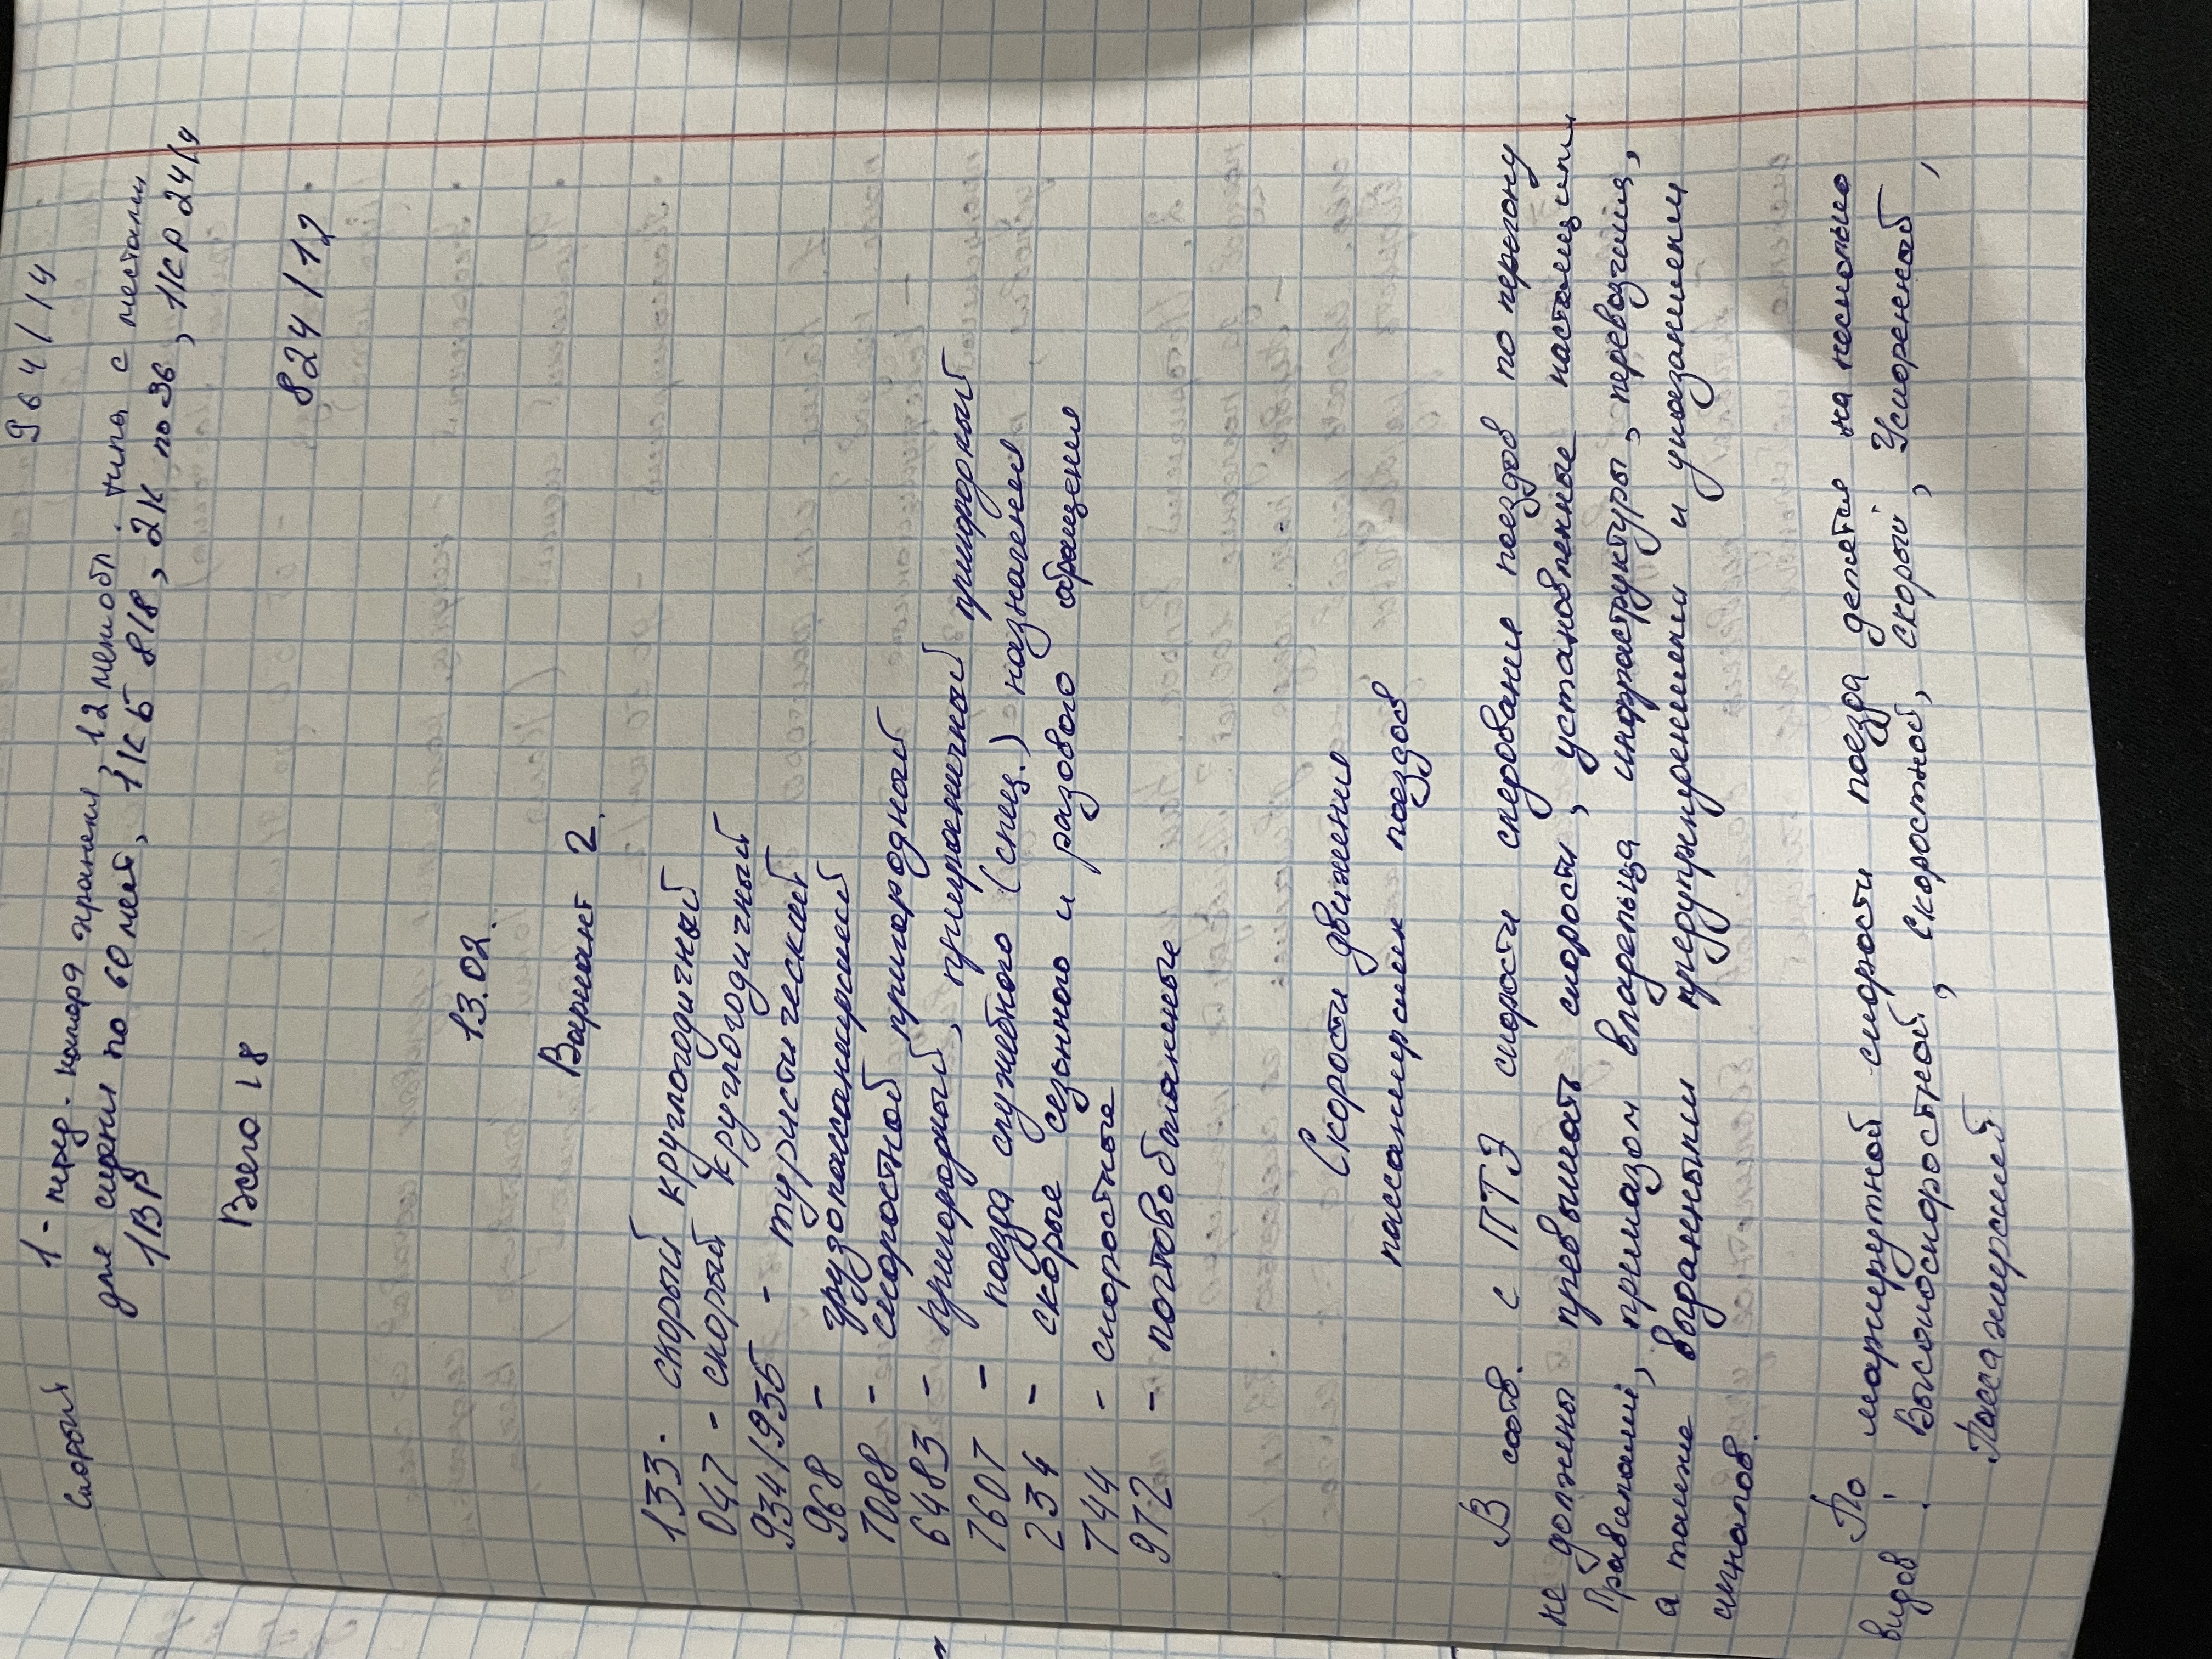 964/14
Скорый 1 - межд. комар хранения, 12 межобл. типа с местами
для сидени по 60 мест, 1 КБ 8/8, 2К по 36, 1КР 24/4
1ВР
Всего 18 824/12
13.02.
Вариант 2.
133 - скорый круглогодичный
047 - скорый круглогодичный
934/935 - туристический
968 - грузопассажирский
7088 - скоростной пригородный
6483 - пригородный, приграничный пригородный
7607 - поезда служебного (спец.) назначения
234 - скорые сезонного и разового обращения
744 - скоростные
972 - почтово багажные
Скорости движения
пассажирских поездов
В соотв. с ПТЭ скорости следования поездов по перегону
не должны превышать скорости, установленные настоящими
Правилами, приказом владельца инфраструктуры, перевозчика,
а также выданными предупреждениями и указаниями
сигналов.
По маршрутной скорости поезда делятся на несколько
видов: Высокоскоростной, скоростной, скорый, Ускоренный,
Пассажирский